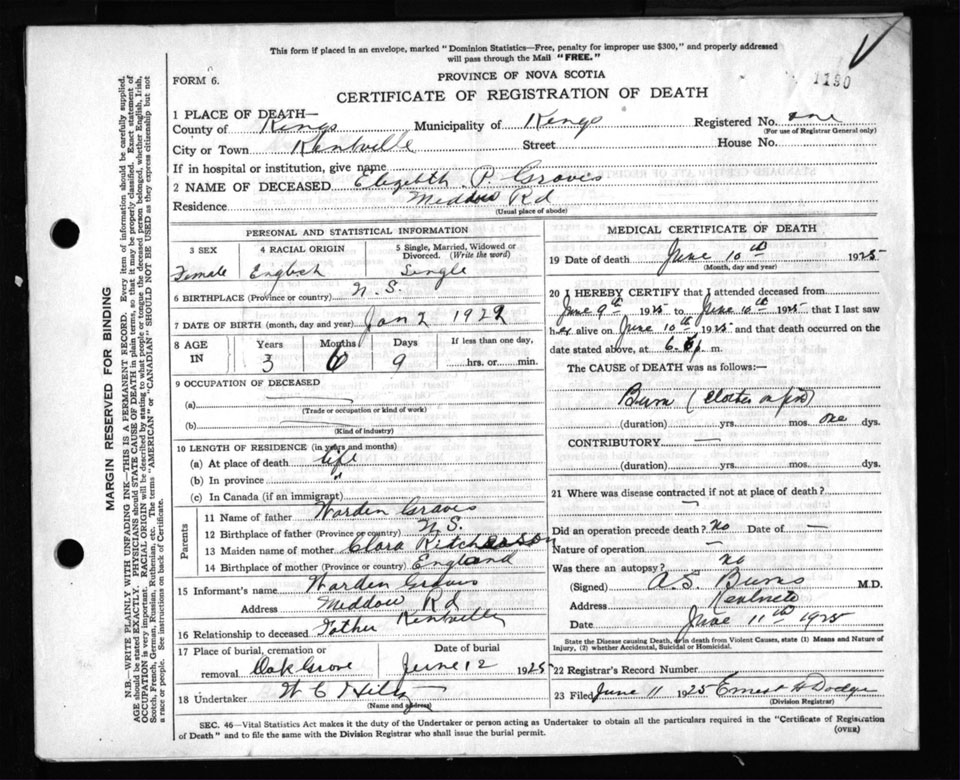 This form if placed in an envelope, marked "Dominion Statistics—Free, penalty for improper use $300," and properly addressed
will pass through the Mail "FREE."
FORM 6.
PROVINCE OF NOVA SCOTIA
1190
CERTIFICATE OF REGISTRATION OF DEATH
1 PLACE OF DEATH—
County of Kings Municipality of Kings Registered No. one
(For use of Registrar General only)
City or Town Kentville Street House No.
If in hospital or institution, give name
2 NAME OF DECEASED Elizabeth P Graves
Residence Meddow Rd
(Usual place of abode)
PERSONAL AND STATISTICAL INFORMATION
3 SEX 4 RACIAL ORIGIN 5 Single, Married, Widowed or Divorced. (Write the word)
Female English Single
6 BIRTHPLACE (Province or country) N. S.
7 DATE OF BIRTH (month, day and year) Jan 2 1922
8 AGE IN Years Months Days If less than one day,
3 6 9 hrs. or min.
9 OCCUPATION OF DECEASED
(a) —
(Trade or occupation or kind of work)
(b) —
(Kind of industry)
10 LENGTH OF RESIDENCE (in years and months)
(a) At place of death life
(b) In province "
(c) In Canada (if an immigrant)
Parents
11 Name of father Warden Graves
12 Birthplace of father (Province or country) N. S.
13 Maiden name of mother Clara Ritcheason
14 Birthplace of mother (Province or country) England
15 Informant's name Warden Graves
Address Meddow Rd
Kentville
16 Relationship to deceased Father
17 Place of burial, cremation or removal Date of burial
Oak Grove June 12 1925
18 Undertaker W E Hiltz
(Name and address)
MEDICAL CERTIFICATE OF DEATH
19 Date of death June 10th 1925
(Month, day and year)
20 I HEREBY CERTIFY that I attended deceased from
June 9th 1925 to June 10th 1925 that I last saw
her alive on June 10th 1925 and that death occurred on the
date stated above, at 6. p. m.
The CAUSE of DEATH was as follows:—
Burn (Clothes on fire)
(duration) yrs. mos. one dys.
CONTRIBUTORY —
(duration) yrs. mos. dys.
21 Where was disease contracted if not at place of death?
—
Did an operation precede death? No Date of —
Nature of operation —
Was there an autopsy? no
(Signed) A S Burns M.D.
Address Kentville
Date June 11th 1925
State the Disease causing Death, or in death from Violent Causes, state (1) Means and Nature of
Injury, (2) whether Accidental, Suicidal or Homicidal.
22 Registrar's Record Number
23 Filed June 11 1925 Ernest H Dodge
(Division Registrar)
SEC. 46—Vital Statistics Act makes it the duty of the Undertaker or person acting as Undertaker to obtain all the particulars required in the "Certificate of Registration
of Death" and to file the same with the Division Registrar who shall issue the burial permit.
(OVER)
MARGIN RESERVED FOR BINDING
N.B.—WRITE PLAINLY WITH UNFADING INK—THIS IS A PERMANENT RECORD. Every item of information should be carefully supplied.
AGE should be stated EXACTLY. PHYSICIANS should STATE CAUSE OF DEATH in plain terms, so that it may be properly classified. Exact statement of
OCCUPATION is very important. RACIAL ORIGIN will be described by stating to what people or tongue the deceased person belonged, whether English, Irish,
Scotch, French, German, Russian, Ruthenian, etc. The terms "AMERICAN" or "CANADIAN" SHOULD NOT BE USED as they express citizenship but not
a race or people. See instructions on back of Certificate.